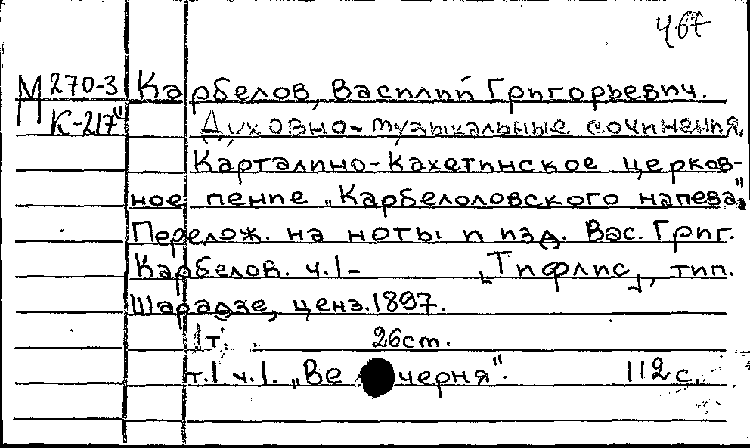 467
М 270-3 Карбелов, Василий Григорьевич.
К-217" Духовно-музыкальные сочинения.
Карталино-Кахетинское церков-
ное пение „Карбелоловского напева".
Перелож. на ноты и изд. Вас. Григ.
Карбелов. ч.1- [Тифлис], тип.
Шарадзе, ценз.1897.
1т. 26см.
т.1 ч.1. „Вечерня". 112с.